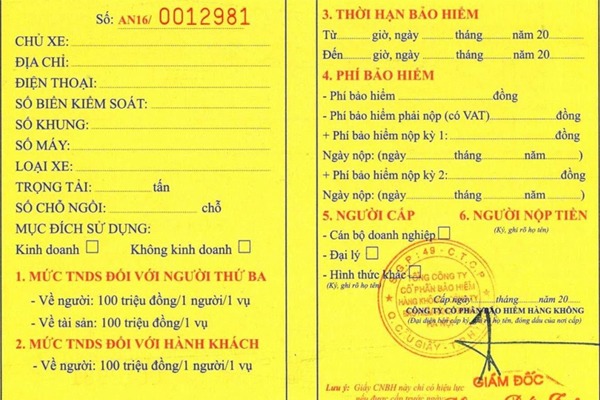 Số: AN16/ 0012981
CHỦ XE:
ĐỊA CHỈ:
ĐIỆN THOẠI:
SỐ BIỂN KIỂM SOÁT:
SỐ KHUNG:
SỐ MÁY:
LOẠI XE:
TRỌNG TẢI: tấn
SỐ CHỖ NGỒI: chỗ
MỤC ĐÍCH SỬ DỤNG:
Kinh doanh Không kinh doanh
1. MỨC TNDS ĐỐI VỚI NGƯỜI THỨ BA
- Về người: 100 triệu đồng/1 người/1 vụ
- Về tài sản: 100 triệu đồng/1 vụ
2. MỨC TNDS ĐỐI VỚI HÀNH KHÁCH
- Về người: 100 triệu đồng/1 người/1 vụ
3. THỜI HẠN BẢO HIỂM
Từ giờ, ngày tháng năm 20
Đến giờ, ngày tháng năm 20
4. PHÍ BẢO HIỂM
- Phí bảo hiểm đồng
- Phí bảo hiểm phải nộp (có VAT) đồng
+ Phí bảo hiểm nộp kỳ 1: đồng
Ngày nộp: (ngày tháng năm )
+ Phí bảo hiểm nộp kỳ 2: đồng
Ngày nộp: (ngày tháng năm )
5. NGƯỜI CẤP 6. NGƯỜI NỘP TIỀN
- Cán bộ doanh nghiệp (Ký, ghi rõ họ tên)
- Đại lý
- Hình thức khác
(Ký, ghi rõ họ tên)
TỔNG CÔNG TY
CỔ PHẦN BẢO HIỂM
HÀNG KHÔNG
Cấp ngày tháng năm 20
CÔNG TY CỔ PHẦN BẢO HIỂM HÀNG KHÔNG
GIÁM ĐỐC
Lưu ý: Giấy CNBH này chỉ có hiệu lực
nếu được cấp trước ngày